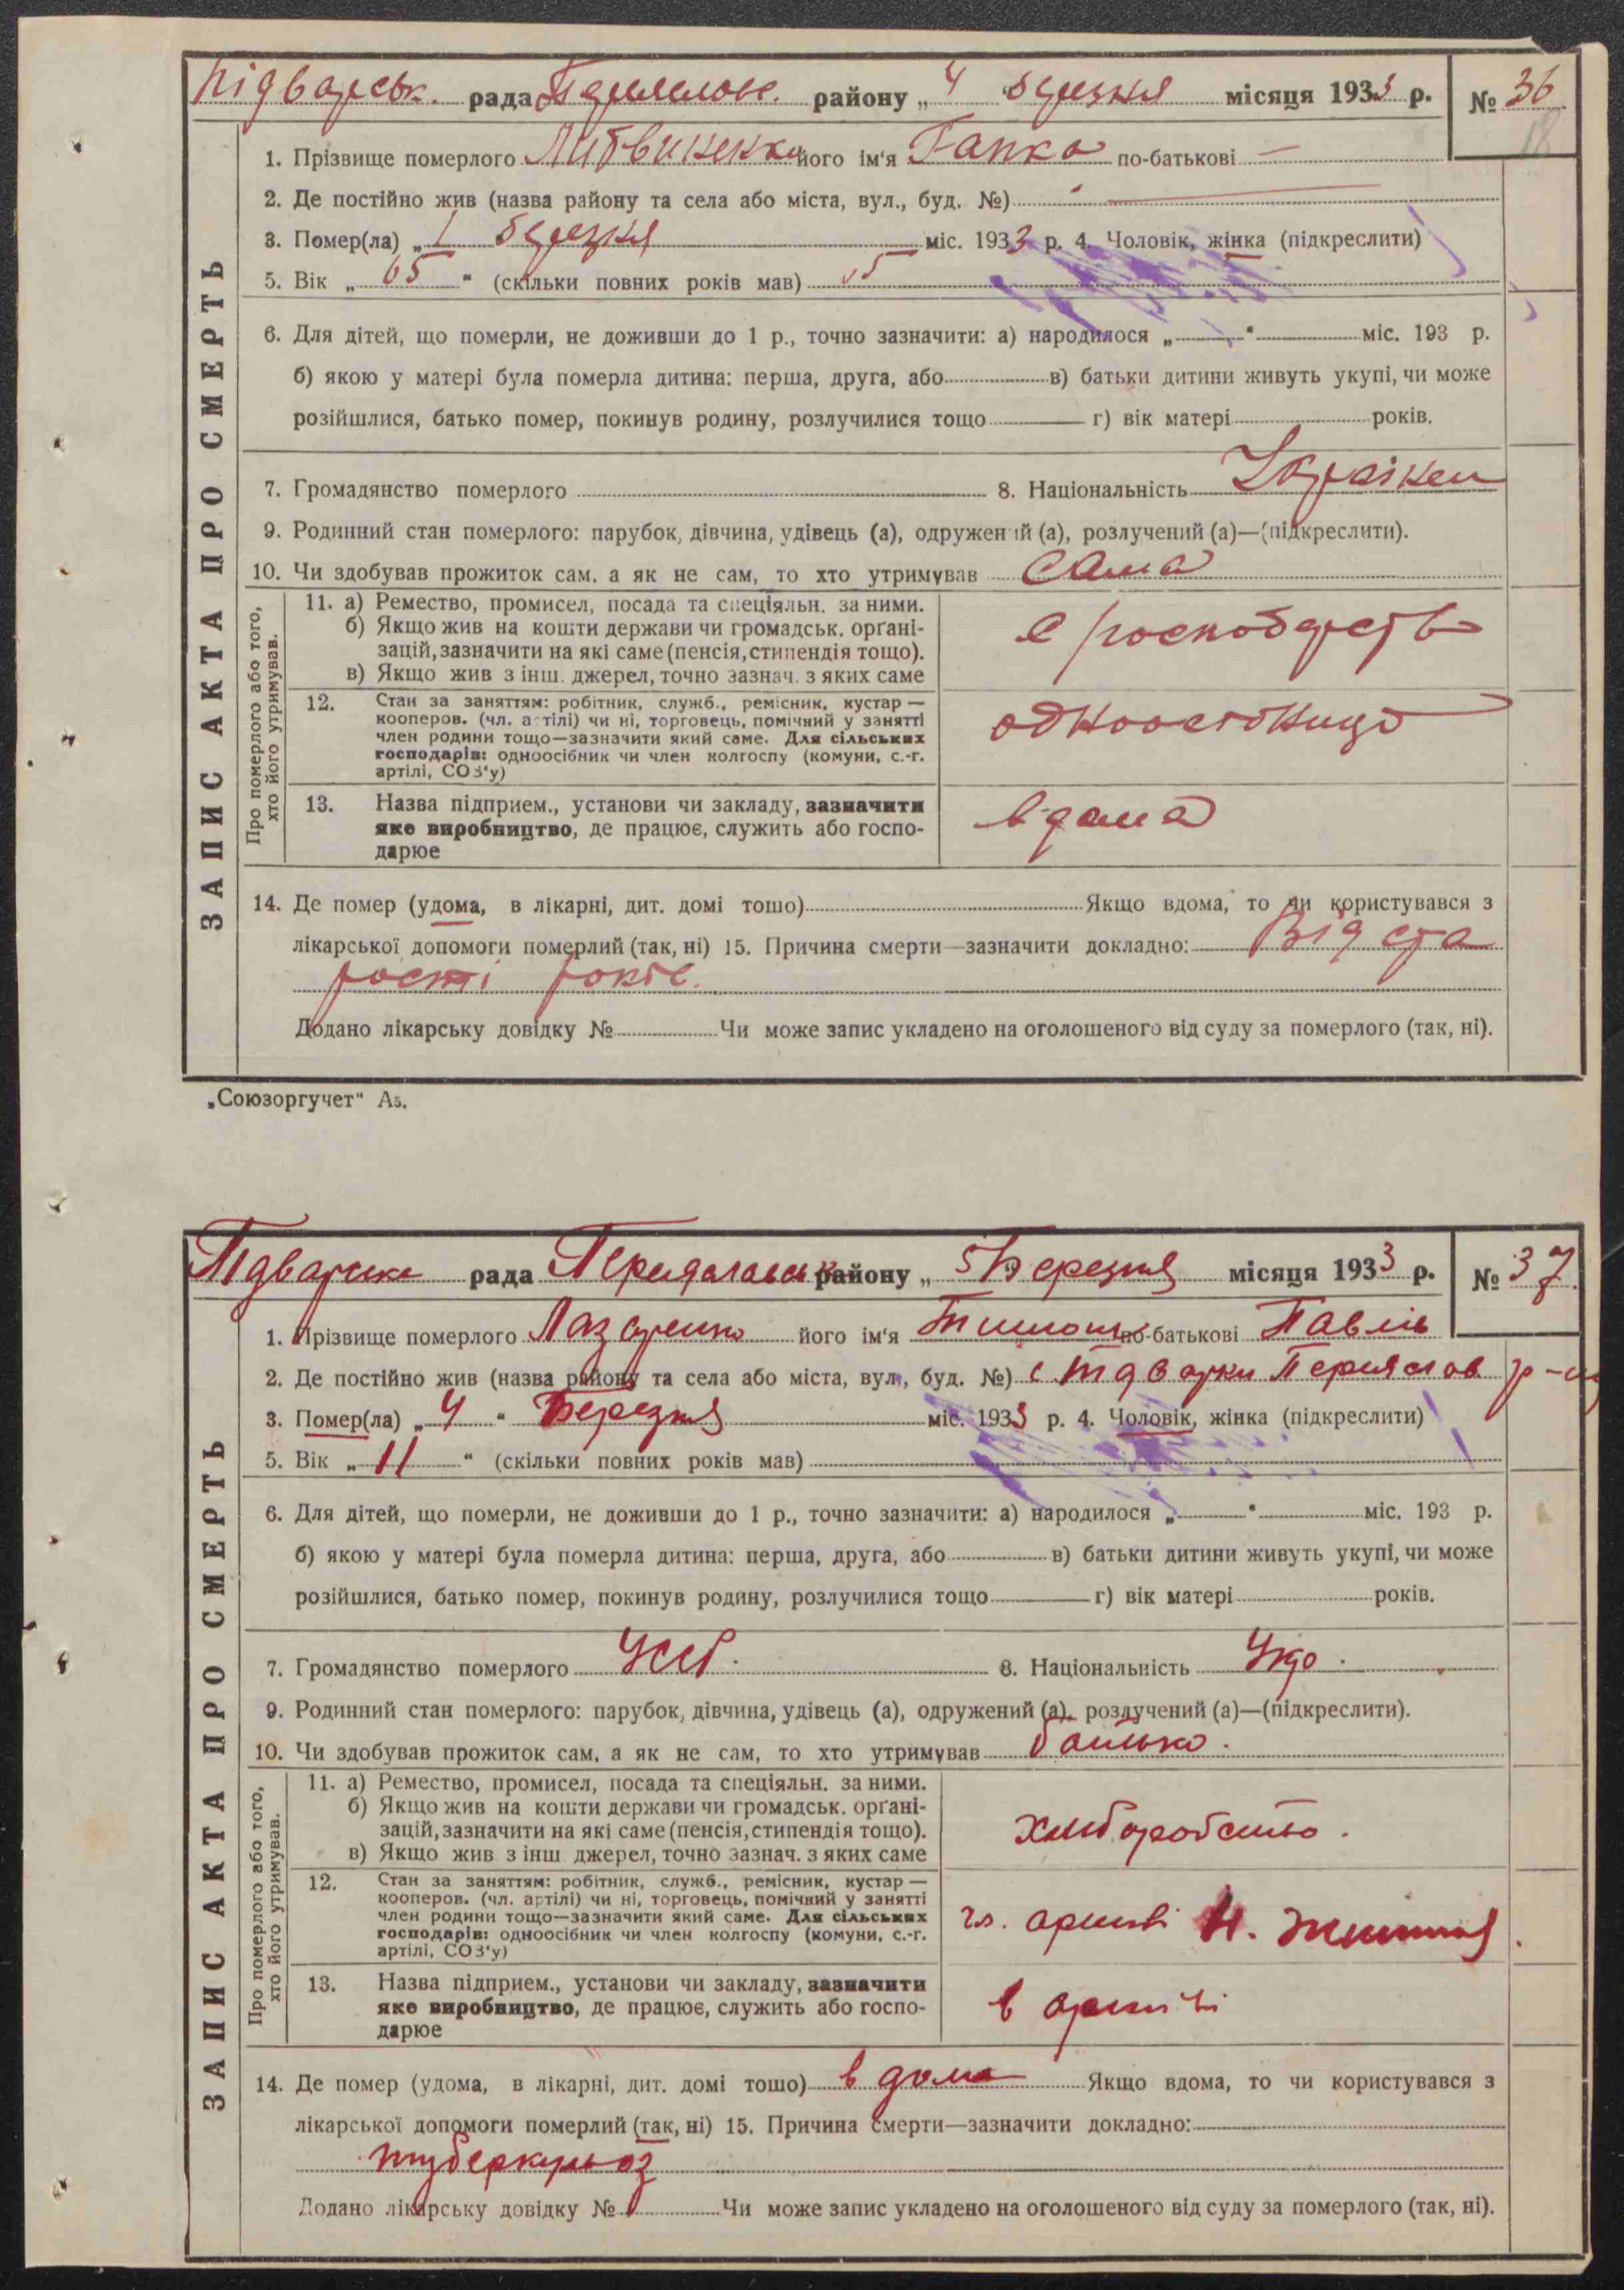 Підварськ. рада Переяслов. району „ 4 " березня місяця 1933 р. № 36
18
1. Прізвище померлого Литвиненко його ім'я Гапка по-батькові —
2. Де постійно жив (назва району та села або міста, вул., буд. №)
3. Помер(ла) „ 1 березня міс. 1933 р. 4. Чоловік, жінка (підкреслити)
5. Вік „ 65 " (скільки повних років мав)
6. Для дітей, що померли, не доживши до 1 р., точно зазначити: а) народилося „ " міс. 193 р.
б) якою у матері була померла дитина: перша, друга, або в) батьки дитини живуть укупі, чи може
розійшлися, батько помер, покинув родину, розлучилися тощо г) вік матері років.
7. Громадянство померлого 8. Національність Українець
9. Родинний стан померлого: парубок, дівчина, удівець (а), одружений (а), розлучений (а)—(підкреслити).
10. Чи здобував прожиток сам, а як не сам, то хто утримував сама
ЗАПИС АКТА ПРО СМЕРТЬ
Про померлого або того, хто його утримував.
11. а) Ремество, промисел, посада та спеціяльн. за ними.
б) Якщо жив на кошти держави чи громадськ. орґані-
зацій, зазначити на які саме (пенсія, стипендія тощо).
в) Якщо жив з інш. джерел, точно зазнач. з яких саме
12. Стан за заняттям: робітник, служб., ремісник, кустар —
кооперов. (чл. артілі) чи ні, торговець, помічний у занятті
член родини тощо—зазначити який саме. Для сільських
господарів: одноосібник чи член колгоспу (комуни, с.-г.
артілі, СОЗ'у)
13. Назва підприєм., установи чи закладу, зазначити
яке виробництво, де працює, служить або госпо-
дарюе
вдома
14. Де помер (удома, в лікарні, дит. домі тошо) Якщо вдома, то чи користувався з
лікарської допомоги померлий (так, ні) 15. Причина смерти—зазначити докладно: Від ста
рости років.
Додано лікарську довідку № Чи може запис укладено на оголошеного від суду за померлого (так, ні).
„Союзоргучет" А5.
Підварська рада Переяславськ району „ 5 Березня місяця 1933 р. № 37.
1. Прізвище померлого Лазаренко його ім'я Тимош по-батькові Павлів
2. Де постійно жив (назва району та села або міста, вул., буд. №) с Підварки Переяслов р-ну
3. Помер(ла) „ 4 " Березня міс. 1933 р. 4. Чоловік, жінка (підкреслити)
5. Вік „ 11 " (скільки повних років мав)
6. Для дітей, що померли, не доживши до 1 р., точно зазначити: а) народилося „ " міс. 193 р.
б) якою у матері була померла дитина: перша, друга, або в) батьки дитини живуть укупі, чи може
розійшлися, батько помер, покинув родину, розлучилися тощо г) вік матері років.
7. Громадянство померлого УССР. 8. Національність Укр.
9. Родинний стан померлого: парубок, дівчина, удівець (а), одружений (а), розлучений (а)—(підкреслити).
10. Чи здобував прожиток сам, а як не сам, то хто утримував батько.
ЗАПИС АКТА ПРО СМЕРТЬ
Про померлого або того, хто його утримував.
11. а) Ремество, промисел, посада та спеціяльн. за ними.
б) Якщо жив на кошти держави чи громадськ. орґані-
зацій, зазначити на які саме (пенсія, стипендія тощо).
в) Якщо жив з інш джерел, точно зазнач. з яких саме
хліборобство.
12. Стан за заняттям: робітник, служб., ремісник, кустар —
кооперов. (чл. артілі) чи ні, торговець, помічний у занятті
член родини тощо—зазначити який саме. Для сільських
господарів: одноосібник чи член колгоспу (комуни, с.-г.
артілі, СОЗ'у)
чл. артілі Н. Життя
13. Назва підприєм., установи чи закладу, зазначити
яке виробництво, де працює, служить або госпо-
дарюе
в артілі
14. Де помер (удома, в лікарні, дит. домі тошо) в дома Якщо вдома, то чи користувався з
лікарської допомоги померлий (так, ні) 15. Причина смерти—зазначити докладно:
туберкульоз
Додано лікарську довідку № Чи може запис укладено на оголошеного від суду за померлого (так, ні).